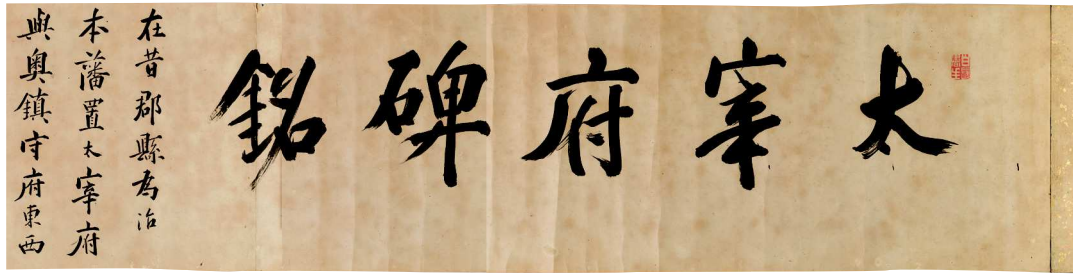 太宰府碑銘
在昔郡縣為治
本藩置太宰府
與奥鎮守府東西